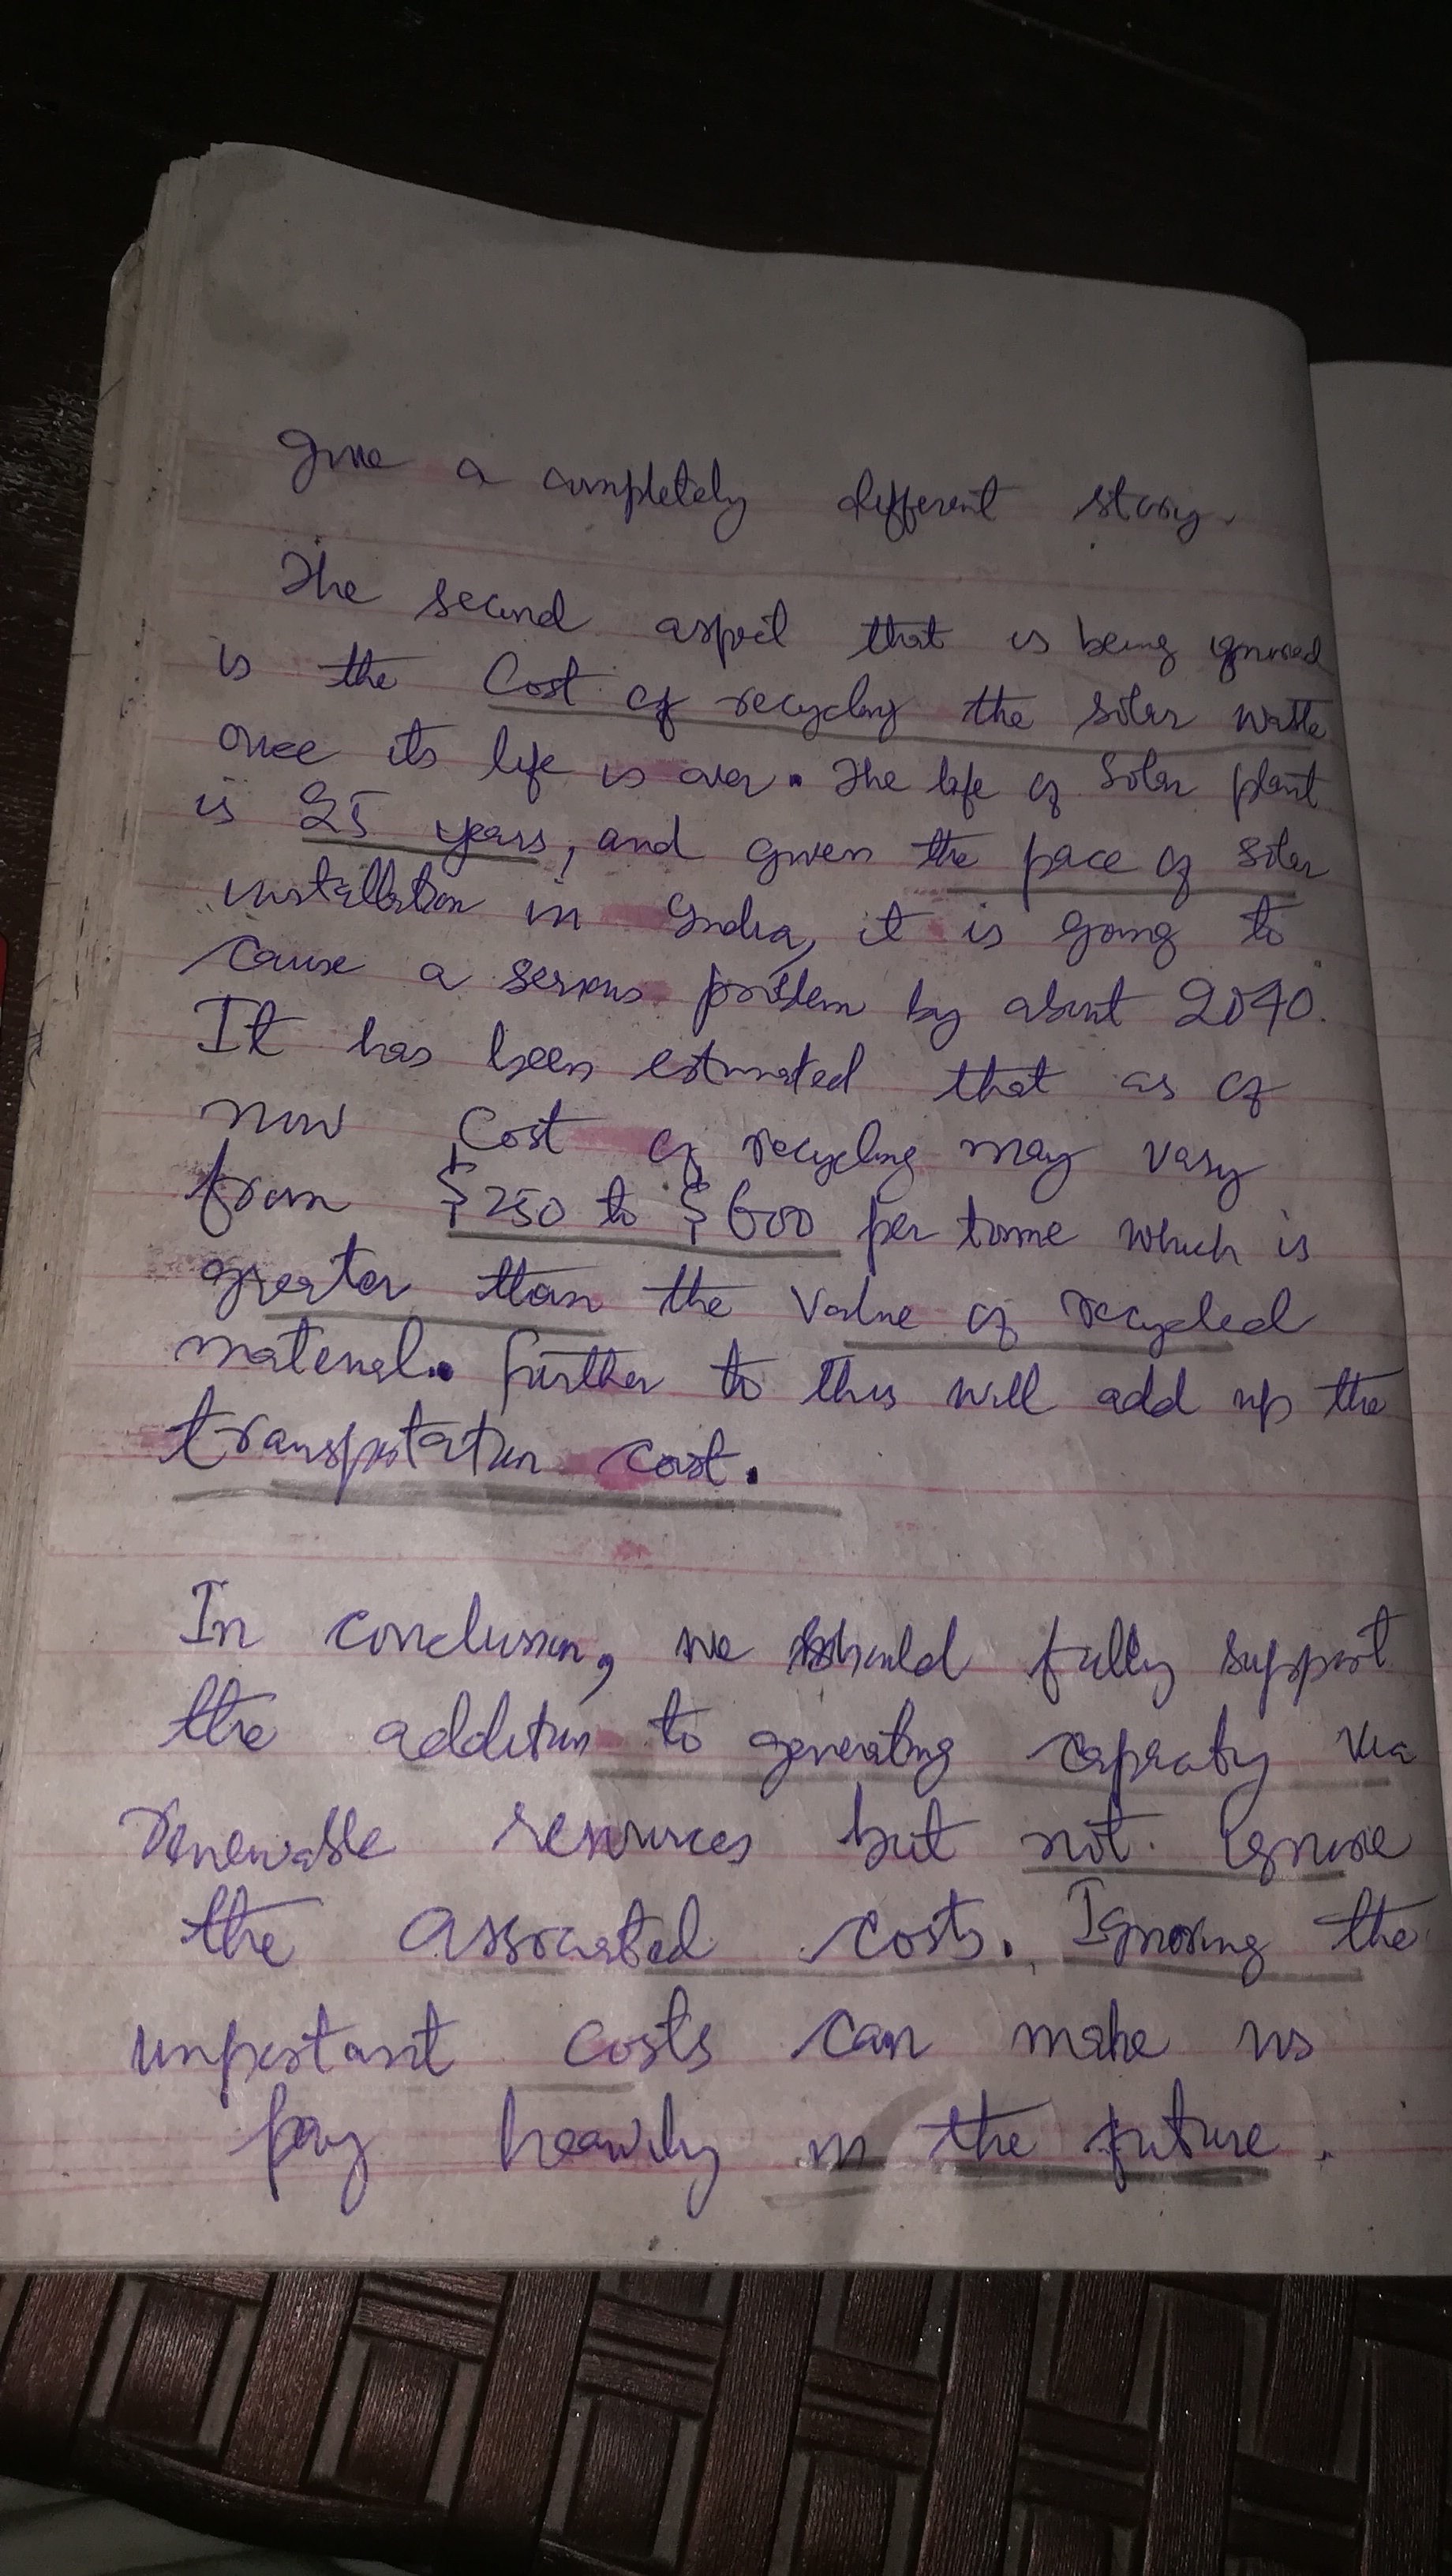 give a completely different story.
The second aspect that is being ignored
is the Cost of recycling the solar waste
once its life is over. The life of Solar plant
is 25 years, and given the pace of solar
installation in India, it is going to
cause a serious problem by about 2040.
It has been estimated that as of
now Cost of recycling may vary
from $250 to $600 per tonne which is
greater than the value of recycled
material. further to this will add up the
transportation cost.
In conclusion, we should fully support
the addition to generating capacity via
renewable resources but not ignore
the associated costs. Ignoring the
important costs can make us
pay heavily in the future.